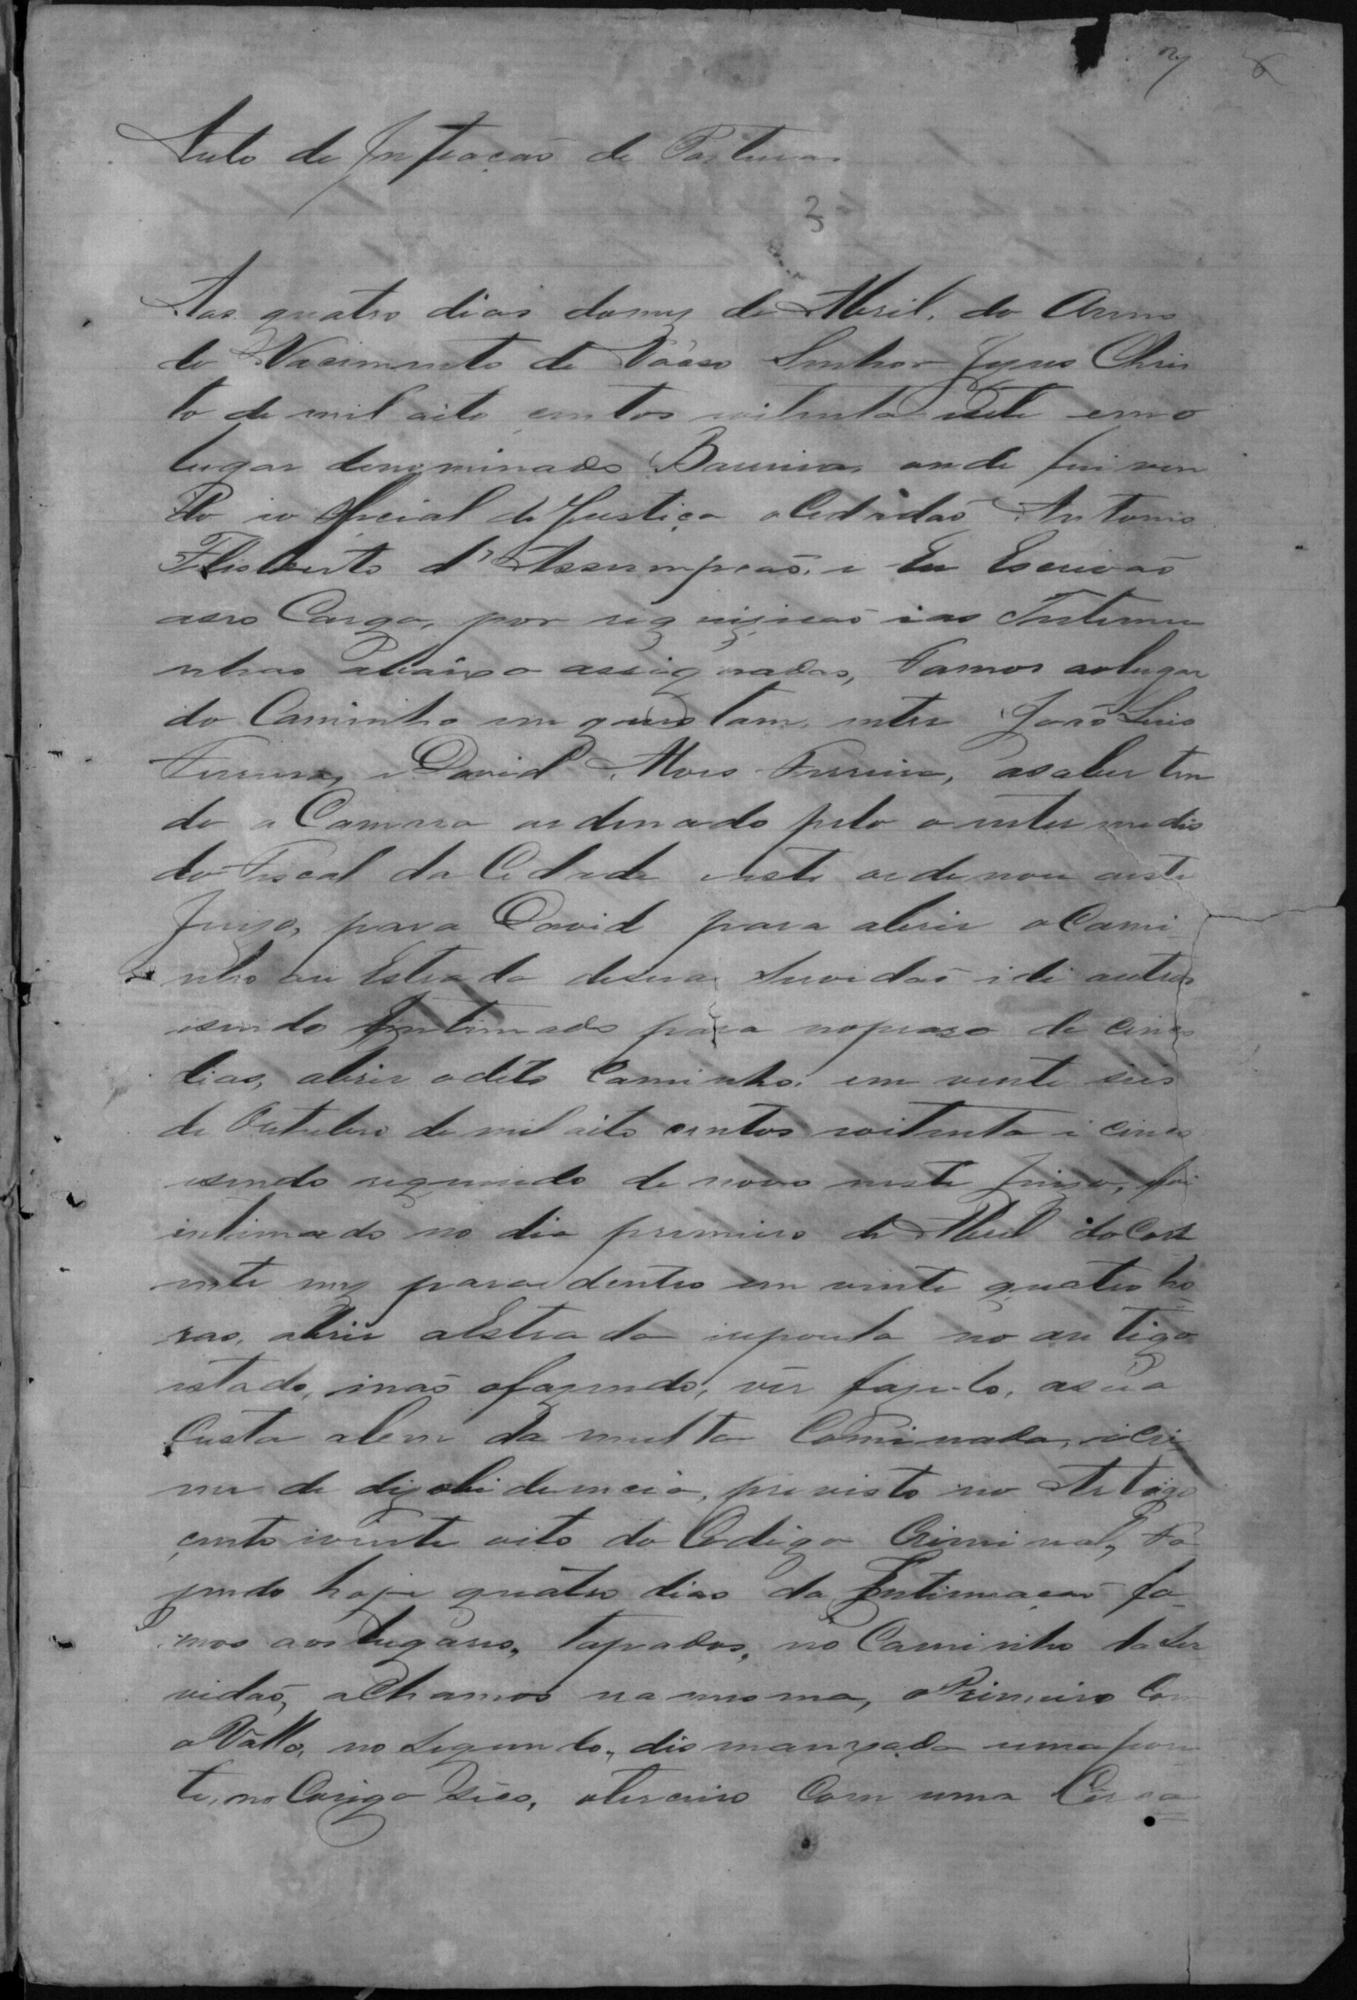 Auto de Infração de Posturas
3
Aos quatro dias do mez de Abril, do Anno
do Nacimento de Nosso Senhor Jezus Chris
to de mil oito centos eoitenta esete em o
lugar denominado Barreiras onde fui vin
do io oficial de Justiça oCidadão Antonio
Felisberto d'Assumpcaõ, i Eu Escrivaõ
aseo Cargo, por
nhas abaixo assignadas, Famos aolugar
do Caminho em questam, entre Joaõ Luis
Ferreira, e David Alves Ferreira, asaber ten
do a Camara ordenado pelo o intermedio
do Fiscal da Cidade este ordenou aeste
Juizo, para David para abrir oCami
nho ou Estrada desua Servidaõ i di autros
isendo Intimado para noprazo de cinco
dias, abrir odito Caminho, em vente seis
de Outubro de mil oito centos eoitenta i cinco
esendo requerido de novo neste Juizo, foi
intimado no dia primeiro de Abril do Corr
ente mez para dentro em vinte quatro ho
ras, abrir aEstrada no antigo
estado, inaõ ofazendo, ver fazelo, asua
Custa alem da multa Cominada, i Cri
me de dizobidiencia, previsto no Artigo
cento ivinte oito do Codigo Criminal, Fa
zendo hoje quatro dias da Intimacaõ fo
mos aos lugares, tapados, no Caminho da Ser
vidaõ, achamos na mesma, oPrimeiro Com
o Vallo, no Segundo, dismanxada uma pon
te, no Corigo Sêco, oterceiro Com uma Cerca